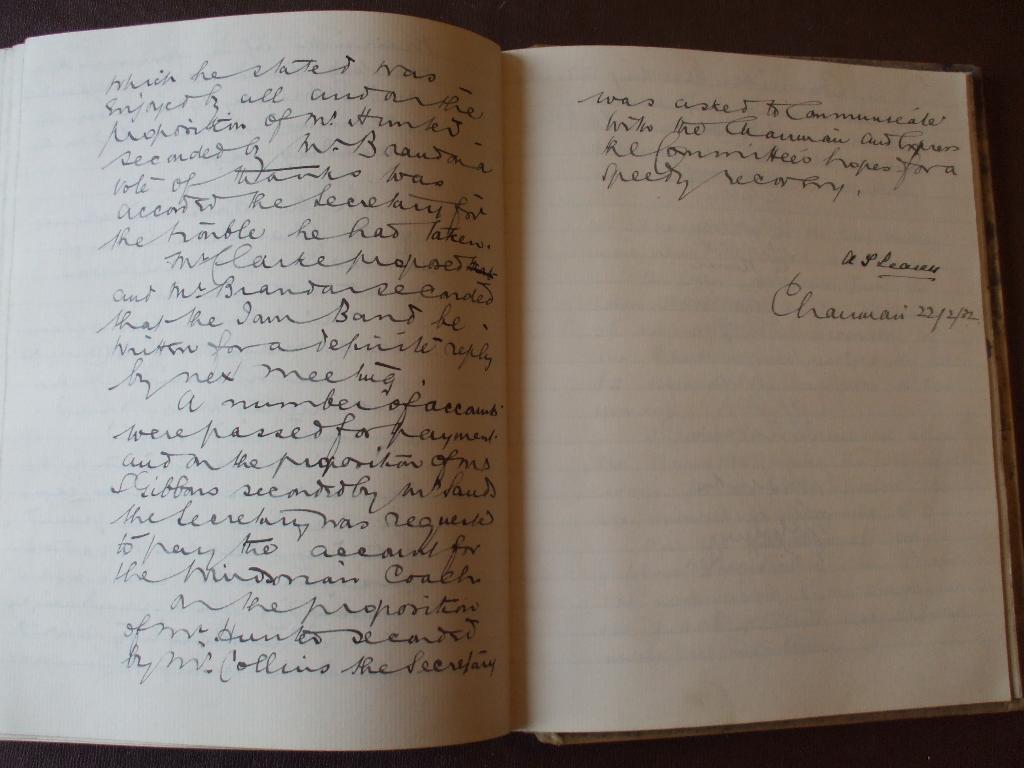 which he stated was
enjoyed by all and on the
proposition of Mr Hunks
seconded by Mr Brandon a
vote of thanks was
accorded the Secretary for
the trouble he had taken.
Mr Clarke proposed
and Mr Brandon seconded
that the Jam Band be
written for a definite reply
by nex meeting.
A number of accounts
were passed for payment
and on the proposition of Mr
S Gibbons seconded by Mr Sands
the Secretary was requested
to pay the account for
the Windsorian Coach
On the proposition
of Mr Hunks seconded
by Mr Collins the Secretary
was asked to Communicate
with the Chairman and Express
the Committees hopes for a
speedy recovery.
A S
Chairman 22/2/32